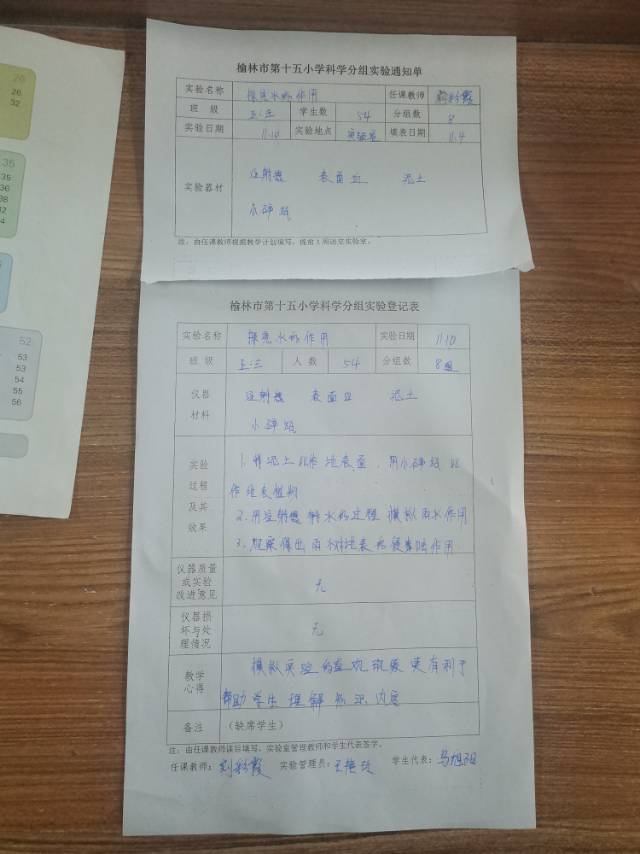 20
26
32
35
35
36
38
32
4
5
52
53
53
54
55
56
榆林市第十五小学科学分组实验通知单
实验名称 探究水的作用 任课教师 刘彩霞
班 级 五.三 学生数 54 分组数 8
实验日期 11.10 实验地点 实验室 填表日期 11.4
实验器材 注射器 表面皿 泥土
小碎纸
注：由任课教师根据教学计划填写，提前1周送至实验室。
榆林市第十五小学科学分组实验登记表
实验名称 探究水的作用 实验日期 11.10
班 级 五.三 人 数 54 分组数 8组
仪器
材料
注射器 表面皿 泥土
小碎纸
实验
过程
及其
效果
1. 将泥土 地表面，用小碎纸
作地表植物
2. 用注射器 水的过程 模拟雨水作用
3. 观察得出雨水对地表的侵蚀 作用
仪器质量
或实验
改进意见
无
仪器损
坏与处
理情况
无
教学
心得
模拟实验的直观 更有利于
帮助学生理解知识内容
备注 （缺席学生）
注：由任课教师课后填写，实验室管理教师和学生代表签字。
任课教师：刘彩霞 实验管理员：王艳 学生代表：马旭